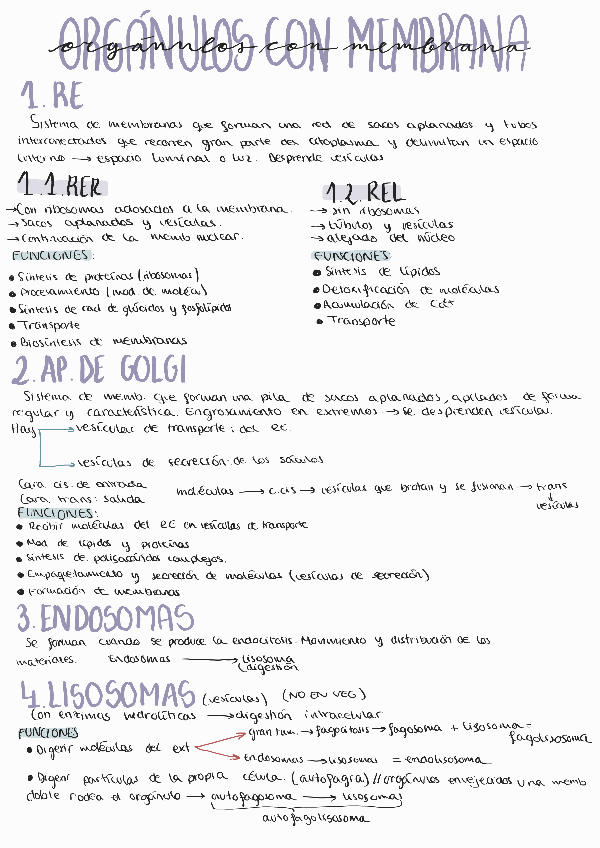 ORGÁNULOS CON MEMBRANA
orgánulos con membrana
1. RE
Sistema de membranas que forman una red de sacos aplanados y tubos
interconectados que recorren gran parte del citoplasma y delimitan un espacio
interno → espacio luminal o luz. Desprende vesículas
1.1. RER
→ Con ribosomas adosados a la membrana.
→ Sacos aplanados y vesículas.
→ Continuación de la memb nuclear.
FUNCIONES:
• Síntesis de proteínas (ribosomas)
• Procesamiento (mod. de molécu)
• Síntesis de rad de glúcidos y fosfolípidos
• Transporte
• Biosíntesis de membranas
1.2. REL
→ sin ribosomas
→ túbulos y vesículas
→ alejado del núcleo
FUNCIONES:
• Síntesis de lípidos
• Detoxificación de moléculas
• Acumulación de Ca²⁺
• Transporte
2. AP. DE GOLGI
Sistema de memb. que forman una pila de sacos aplanados, apilados de forma
regular y característica. Engrosamiento en extremos → se desprenden vesículas.
Hay → vesículas de transporte: del ec.
→ vesículas de secreción: de los sáculos
Cara cis: de entrada
Cara trans: salida
moléculas → c.cis → vesículas que brotan y se fusionan → trans
↓
vesículas
FUNCIONES:
• Recibir moléculas del ec en vesículas de transporte
• Mod de lípidos y proteínas
• Síntesis de polisacáridos complejos.
• Empaquetamiento y secreción de moléculas (vesículas de secreción)
• Formación de membranas
3. ENDOSOMAS
Se forman cuando se produce la endocitosis. Movimiento y distribución de los
materiales. Endosomas → lisosoma
(digestión
4. LISOSOMAS (vesículas) (NO EN VEG)
Con enzimas hidrolíticas → digestión intracelular
FUNCIONES
• Digerir moléculas del ext → gran tam. → fagocitosis → fagosoma + lisosoma =
fagolisosoma
→ endosomas → lisosomas = endolisosoma
• Digerir partículas de la propia célula. (autofagia) // orgánulos envejecidos una memb
doble rodea el orgánulo → autofagosoma → lisosomas
autofagolisosoma